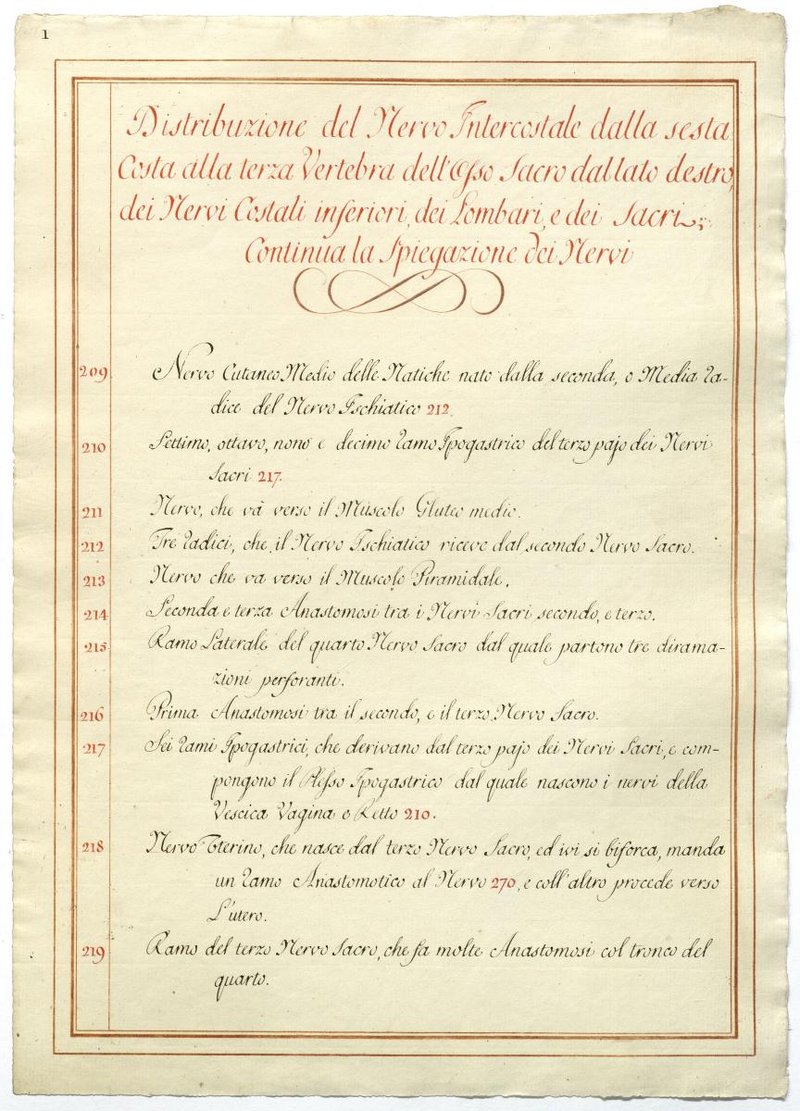 1
Distribuzione del Nervo Intercostale dalla sesta
Costa alla terza Vertebra dell'Osso Sacro dal lato destro,
dei Nervi Costali inferiori, dei Lombari, e dei Sacri;
Continua la Spiegazione dei Nervi
209 Nervo Cutaneo Medio delle Natiche nato dalla seconda, o Media Ra-
dice del Nervo Ischiatico 212.
210 Settimo, ottavo, nono e decimo Ramo Ipogastrico del terzo pajo dei Nervi
Sacri 217.
211 Nervo, che và verso il Muscolo Gluteo medio.
212 Tre Radici, che il Nervo Ischiatico riceve dal secondo Nervo Sacro.
213 Nervo che va verso il Muscolo Piramidale.
214 Seconda e terza Anastomosi tra i Nervi Sacri secondo, e terzo.
215 Ramo Laterale del quarto Nervo Sacro dal quale partono tre dirama-
zioni perforanti.
216 Prima Anastomosi tra il secondo, e il terzo Nervo Sacro.
217 Sei Rami Ipogastrici, che derivano dal terzo pajo dei Nervi Sacri, e com-
pongono il Plesso Ipogastrico dal quale nascono i nervi della
Vescica Vagina e Retto 210.
218 Nervo Uterino, che nasce dal terzo Nervo Sacro, ed ivi si biforca, manda
un Ramo Anastomotico al Nervo 270, e coll'altro procede verso
L'utero.
219 Ramo del terzo Nervo Sacro, che fa molte Anastomosi col tronco del
quarto.